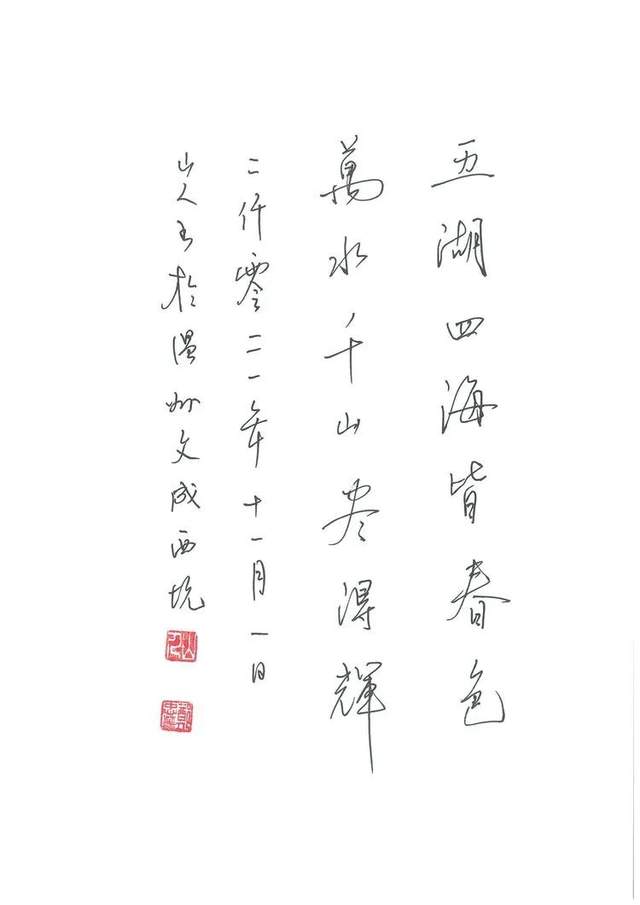 五湖四海皆春色
萬水千山尽得輝
二仟零二一年十一月一日
山人书於温州文成西坑